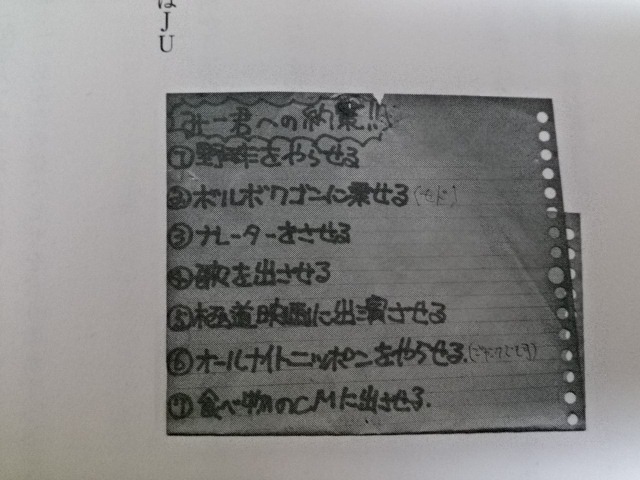 は
J
U
一君への約束!!
①野球をやらせる
②ボルボワゴンに乗せる
③ナレーターをさせる
④歌を出させる
⑤極道映画に出演させる
⑥オールナイトニッポンをやらせる.
⑦食べ物のCMに出させる.